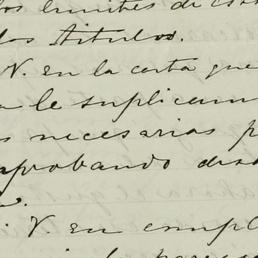 los limites de
los titulos.
V. en la carta que
a le suplicam
s necesarias p
probando desd
V. en cumpl